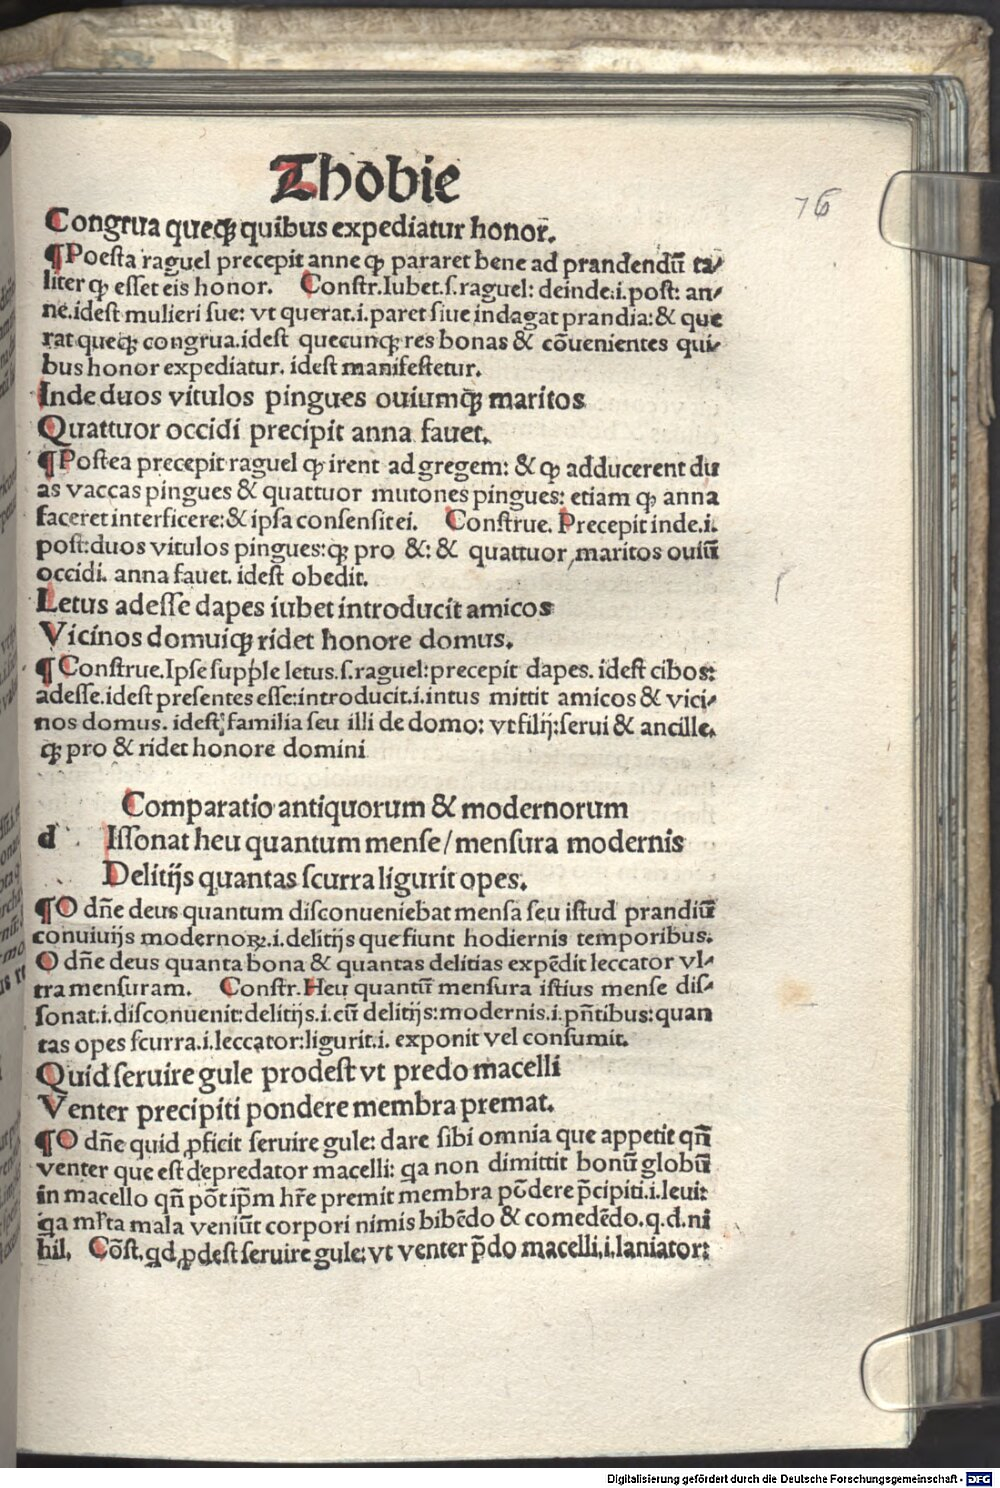 Thobie
76
Congrua queqꝫ quibus expediatur honor.
¶Poesta raguel precepit anne ꝙ pararet bene ad prandendū ta⸗
liter ꝙ esset eis honor. Constr.Iubet.s.raguel: deinde.i.post: an⸗
ne.idest mulieri sue: vt querat.i.paret siue indagat prandia:& que
rat queqꝫ congrua.idest quecunqꝫ res bonas & cōuenientes qui⸗
bus honor expediatur. idest manifestetur.
Inde duos vitulos pingues ouiumqꝫ maritos
Quattuor occidi precipit anna fauet.
¶Postea precepit raguel ꝙ irent ad gregem: & ꝙ adducerent du
as vaccas pingues & quattuor mutones pingues: etiam ꝙ anna
faceret interficere:& ipsa consensit ei. Construe. Precepit inde.i.
post:duos vitulos pingues:qꝫ pro &: & quattuor maritos ouiū
occidi. anna fauet. idest obedit.
Letus adesse dapes iubet introducit amicos
Vicinos domuiqꝫ ridet honore domus.
¶Construe.Ipse supple letus.s.raguel:precepit dapes. idest cibos:
adesse.idest presentes esse:introducit.i.intus mittit amicos & vici⸗
nos domus. idest familia seu illi de domo: vt filij:serui & ancille.
qꝫ pro & ridet honore domini
Comparatio antiquorum & modernorum
d Issonat heu quantum mense/mensura modernis
Delitijs quantas scurra ligurit opes.
¶O dn̄e deus quantum disconueniebat mensa seu istud prandiū
conuiuijs modernoꝝ.i.delitijs que fiunt hodiernis temporibus.
O dn̄e deus quanta bona & quantas delitias expēdit leccator vl⸗
tra mensuram. Constr.Heu quantū mensura istius mense dis⸗
sonat.i.disconuenit:delitijs.i.cū delitijs:modernis.i.pn̄tibus:quan
tas opes scurra.i.leccator:ligurit.i. exponit vel consumit.
Quid seruire gule prodest vt predo macelli
Venter precipiti pondere membra premat.
¶O dn̄e quid ꝓficit seruire gule: dare sibi omnia que appetit qn̄
venter que est depredator macelli: qa non dimittit bonū globū
in macello qn̄ pōt ip̄m hr̄e premit membra pōdere p̄cipiti.i.leui:
qa ml̄ta mala veniūt corpori nimis bibēdo & comedēdo.q.d.ni
hil. Cōst.qd ꝓdest seruire gule:vt venter p̄do macelli.i.laniator:
Digitalisierung gefördert durch die Deutsche Forschungsgemeinschaft - DFG